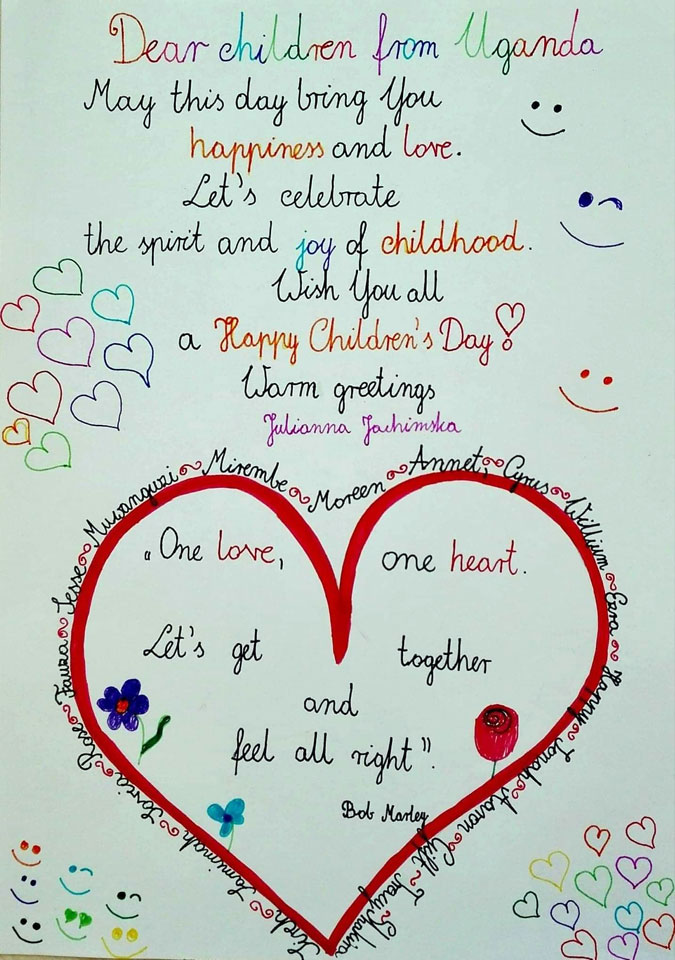 Dear children from Uganda
May this day bring You
happiness and love.
Let's celebrate
the spirit and joy of childhood.
Wish You all
a Happy Children's Day!
Warm greetings
Julianna Jachimska
Mirembe ~ Moreen ~ Annet, ~ Cyrus ~ William ~ Ezra ~ Happy ~ Jonah ~ Aaron ~ Gift ~ Tracy ~ Shakira
Jesse ~ Fauza ~ Rose ~ Sovia ~
„One love, one heart.
Let's get together
and
feel all right".
Bob Marley